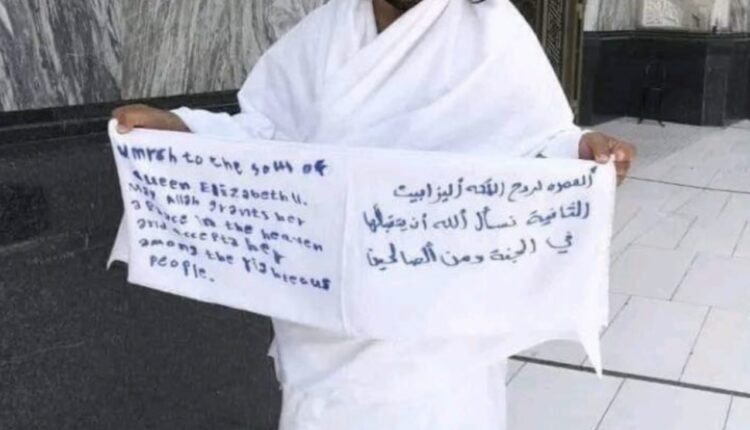 Umrah to the soul of
Queen Elizabeth II.
May Allah grants her
a place in the heaven
and accepta her
among the righteous
people.
العمره لروح الملكه أليزابيت
الثانية نسأل الله أن يتقبلها
في الجنة ومن ألصالحين